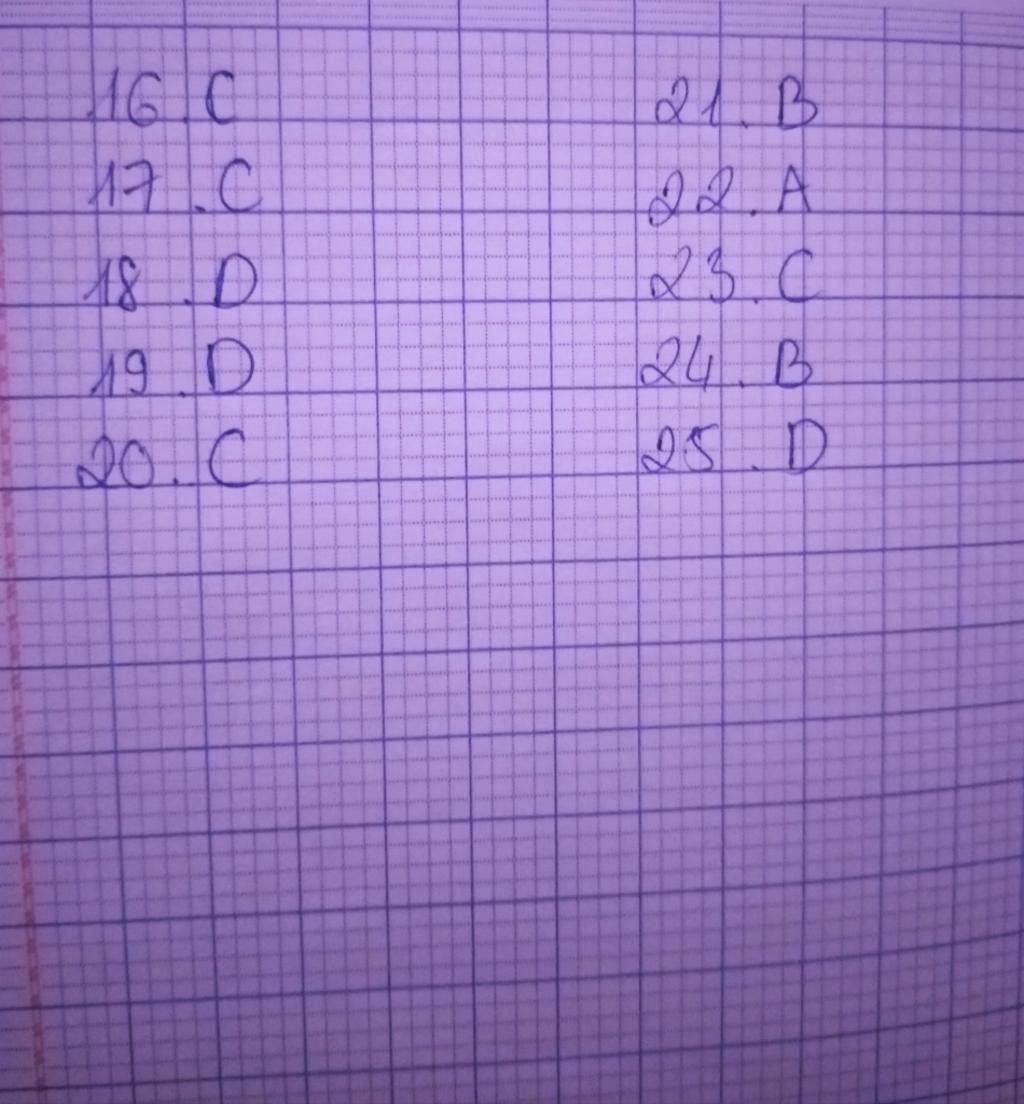 16. C
17. C
18. D
19. D
20. C
21. B
22. A
23. C
24. B
25. D